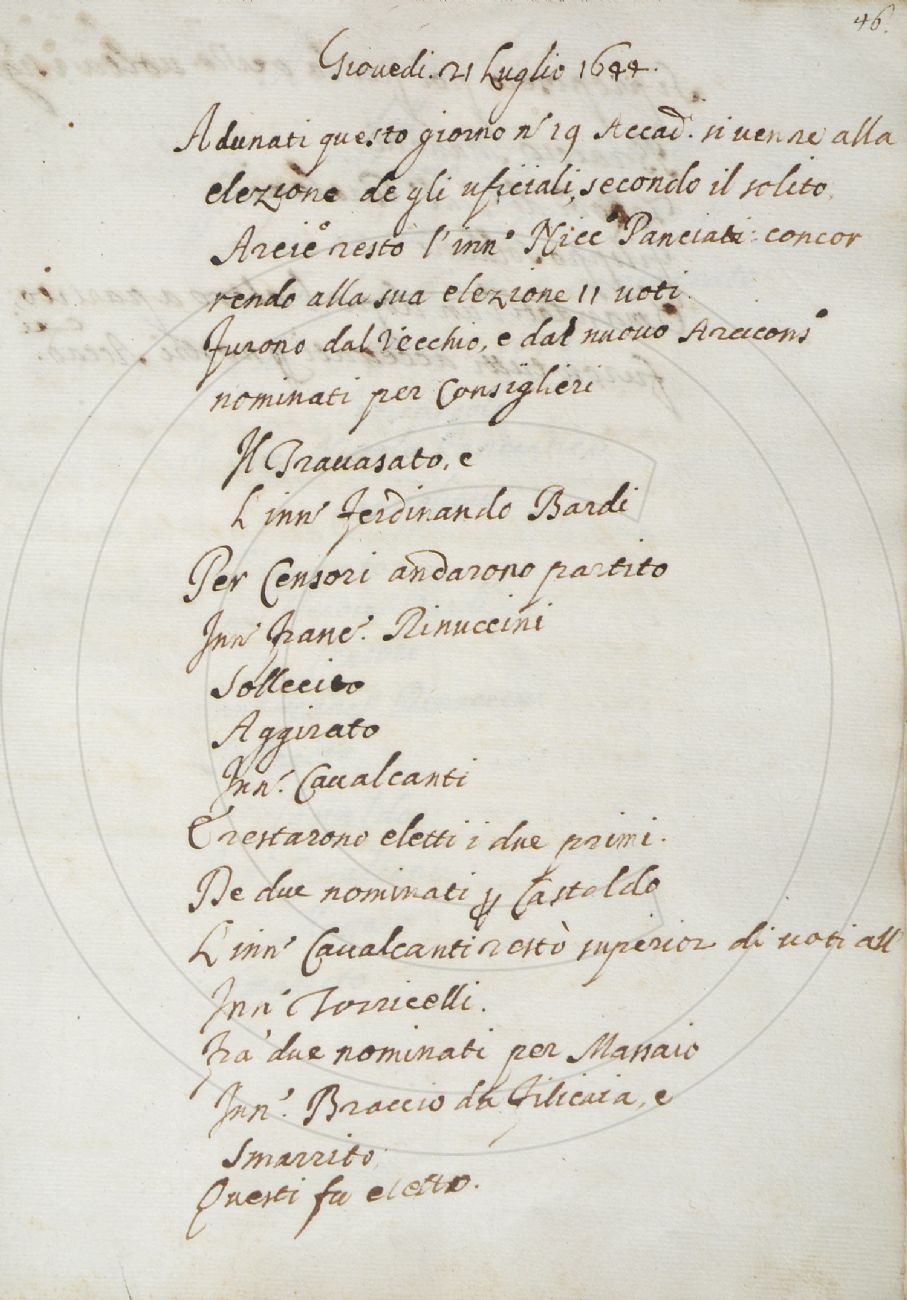 46.
Giovedi. 21 Luglio 1644.
Adunati questo giorno n.º 19 Accad. si venne alla
elezione de gli uficiali, secondo il solito.
Arcic.º restò l'inn.º Nicc.º Panciati: concor
rendo alla sua elezione 11 voti.
Furono dal Vecchio, e dal nuovo Arcicons.º
nominati per Consiglieri
Il Travasato, e
L'inn.º Ferdinando Bardi
Per Censori andarono partito
Inn.º Franc.º Rinuccini
Sollecito
Aggirato
Inn.º Cavalcanti
E restarono eletti i due primi.
De due nominati p Castaldo
L'inn.º Cavalcanti restò superior di voti all'
Inn.º Torricelli.
Fra due nominati per Massaio
Inn.º Braccio da Filicaia, e
Smarrito
Questi fu eletto.